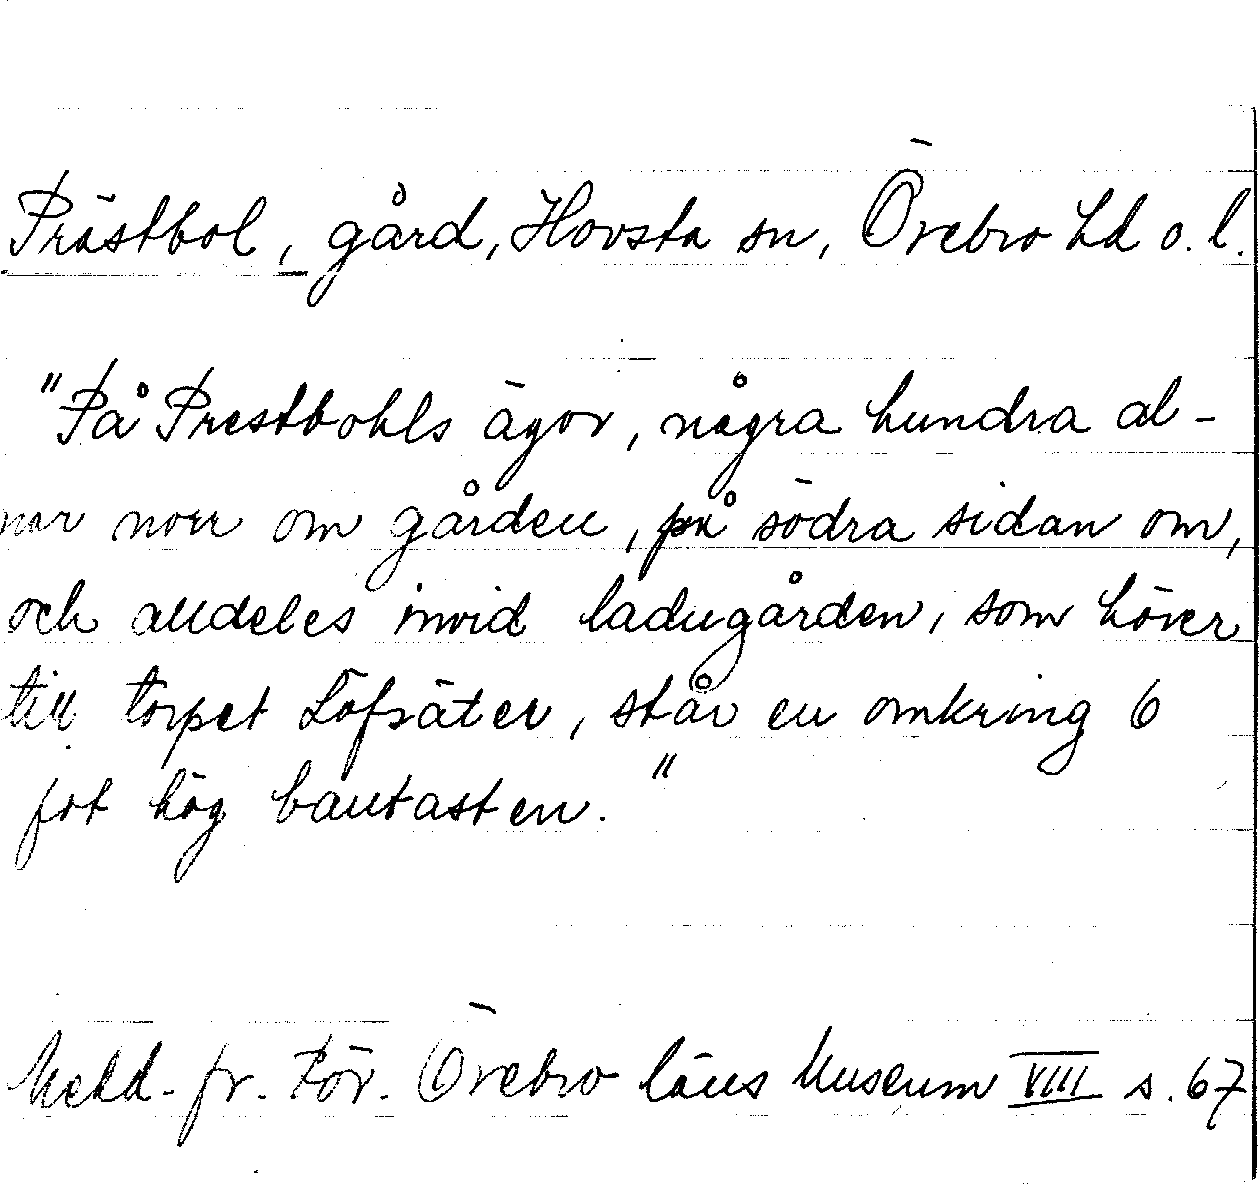 Prästbol, gård, Hovsta sn, Örebro hd o. l.
"På Prestbohls ägor, några hundra al-
nar norr om gården, på södra sidan om,
och alldeles invid ladugården, som hörer
till torpet Löfsäter, står en omkring 6
fot hög bautasten."
Medd. fr. För. Örebro läns Museum VIII s. 67